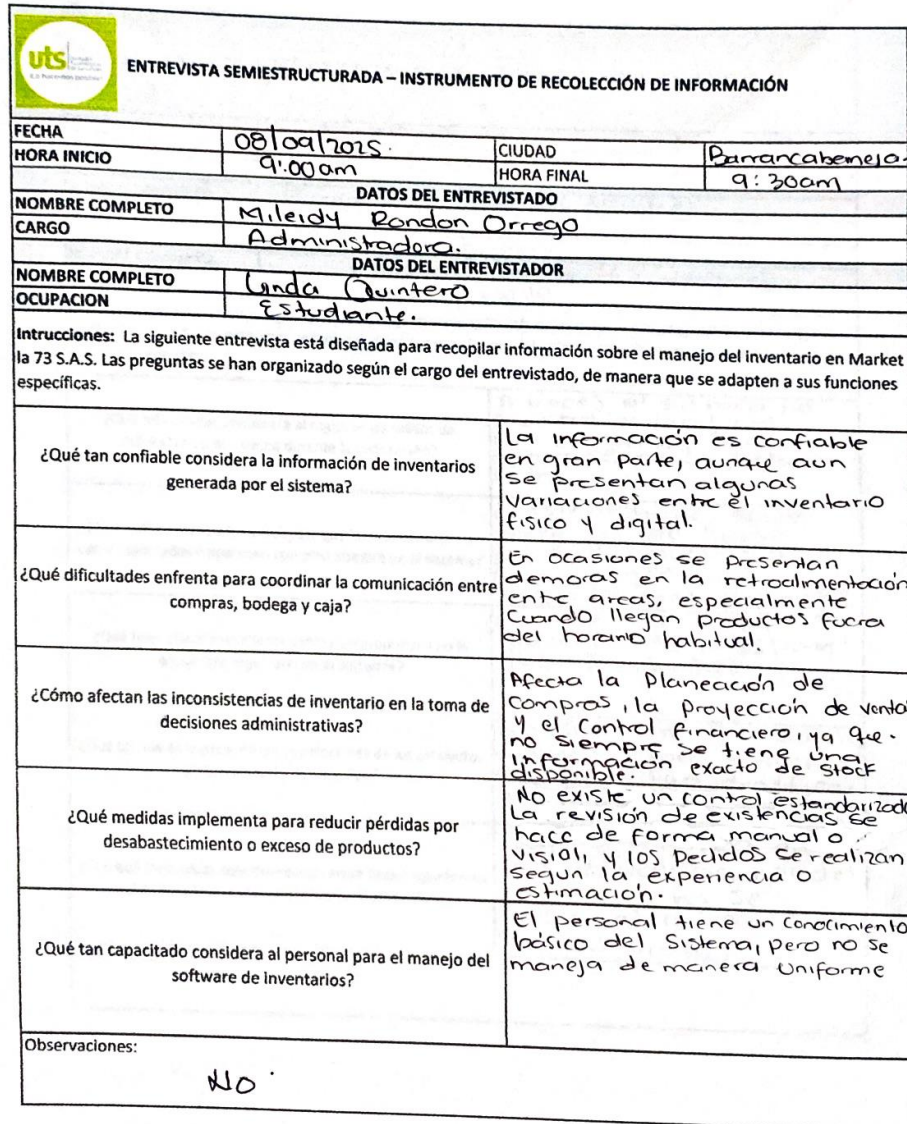 uts
ENTREVISTA SEMIESTRUCTURADA – INSTRUMENTO DE RECOLECCIÓN DE INFORMACIÓN
FECHA 08/09/2025. CIUDAD Barrancabermeja.
HORA INICIO 9:00am HORA FINAL 9:30am
DATOS DEL ENTREVISTADO
NOMBRE COMPLETO Mileidy Rondon Orrego
CARGO Administradora.
DATOS DEL ENTREVISTADOR
NOMBRE COMPLETO Linda Quintero
OCUPACION Estudiante.
Intrucciones: La siguiente entrevista está diseñada para recopilar información sobre el manejo del inventario en Market
la 73 S.A.S. Las preguntas se han organizado según el cargo del entrevistado, de manera que se adapten a sus funciones
específicas.
¿Qué tan confiable considera la información de inventarios
generada por el sistema?
La información es confiable
en gran parte, aunque aun
se presentan algunas
variaciones entre el inventario
fisico y digital.
¿Qué dificultades enfrenta para coordinar la comunicación entre
compras, bodega y caja?
En ocasiones se presentan
demoras en la retroalimentación
entre areas, especialmente
cuando llegan productos fuera
del horario habitual.
¿Cómo afectan las inconsistencias de inventario en la toma de
decisiones administrativas?
Afecta la Planeación de
compras, la proyección de venta
y el control financiero, ya que.
no siempre se tiene una
información exacto de stock
disponible.
¿Qué medidas implementa para reducir pérdidas por
desabastecimiento o exceso de productos?
No existe un control estandarizado
La revisión de existencias se
hace de forma manual o
visial, y los pedidos se realizan
segun la experiencia o
estimación.
¿Qué tan capacitado considera al personal para el manejo del
software de inventarios?
El personal tiene un conocimiento
básico del Sistema, pero no se
maneja de manera uniforme
Observaciones:
No.